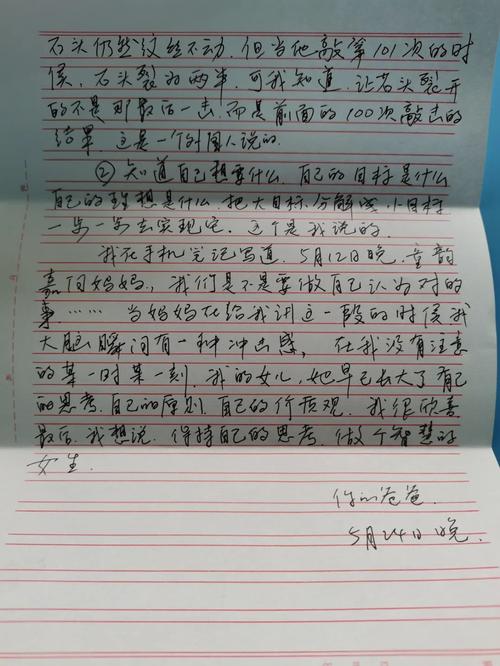 石头仍然纹丝不动.但当他敲第101次的时
候,石头裂为两半.可我知道,让石头裂开
的不是那最后一击.而是前面的100次敲击的
结果.这是一个外国人说的.
② 知道自己想要什么.自己的目标是什么
自己的理想是什么.把大目标分解成小目标
一步一步去实现它.这个是我说的.
我在手机笔记写道,5月12日晚,童韵
嘉问妈妈,我们是不是要做自己认为对的
事……当妈妈在给我讲这一段的时候我
大脑瞬间有一种冲击感,在我没有注意
的某一时某一刻,我的女儿,她早已长大了有自己
的思考.自己的原则.自己的价值观.我很欣喜
最后.我想说.保持自己的思考.做个智慧的
女生.
你的爸爸.
5月24日晚.